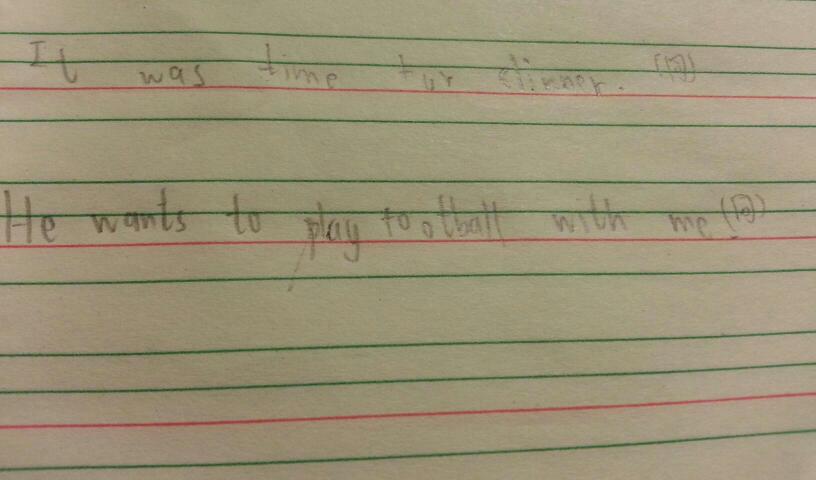 It was time for dinner. (回)
He wants to play football with me (回)